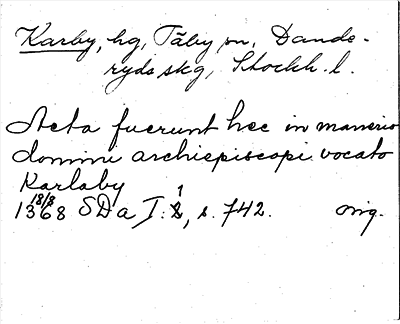 Karby, hg, Täby sn, Dande-
ryds skg, Stockh. l.
Acta fuerunt hec in manerio
domini archiepiscopi vocato
Karlaby
18/8 1
1368 SDa I:8, s. 742. orig.